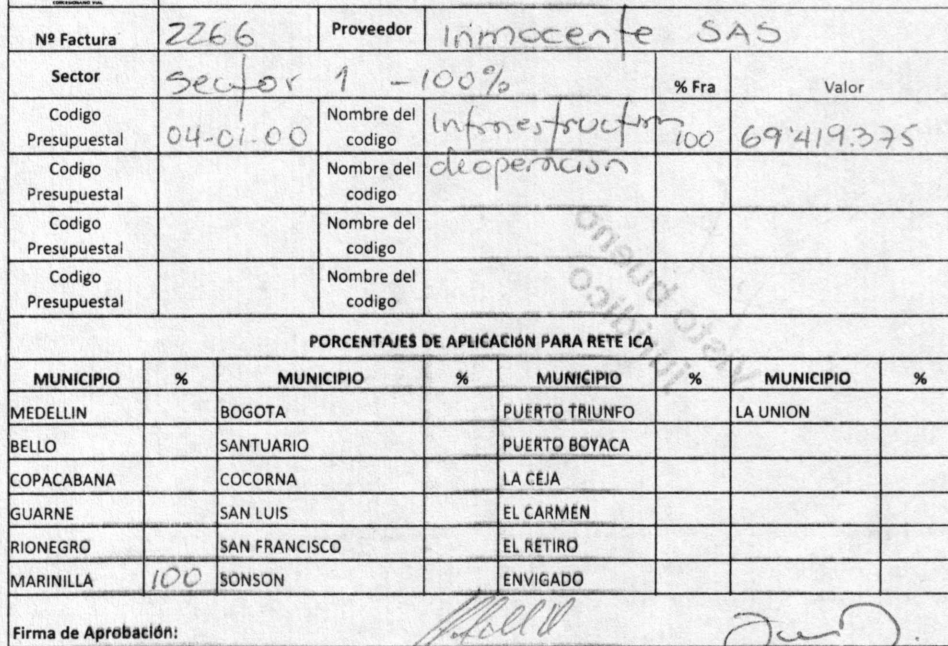 CONCESIONARIO VIAL
Nº Factura 2266 Proveedor Inmocente SAS
Sector Sector 1 - 100% % Fra Valor
Codigo Presupuestal 04-01.00 Nombre del codigo Infraestructura 100 69'419.375
Codigo Presupuestal Nombre del codigo de operacion
Codigo Presupuestal Nombre del codigo
Codigo Presupuestal Nombre del codigo
Visto bueno
Juridico
PORCENTAJES DE APLICACIÓN PARA RETE ICA
MUNICIPIO % MUNICIPIO % MUNICIPIO % MUNICIPIO %
MEDELLIN BOGOTA PUERTO TRIUNFO LA UNION
BELLO SANTUARIO PUERTO BOYACA
COPACABANA COCORNA LA CEJA
GUARNE SAN LUIS EL CARMEN
RIONEGRO SAN FRANCISCO EL RETIRO
MARINILLA 100 SONSON ENVIGADO
Firma de Aprobación: